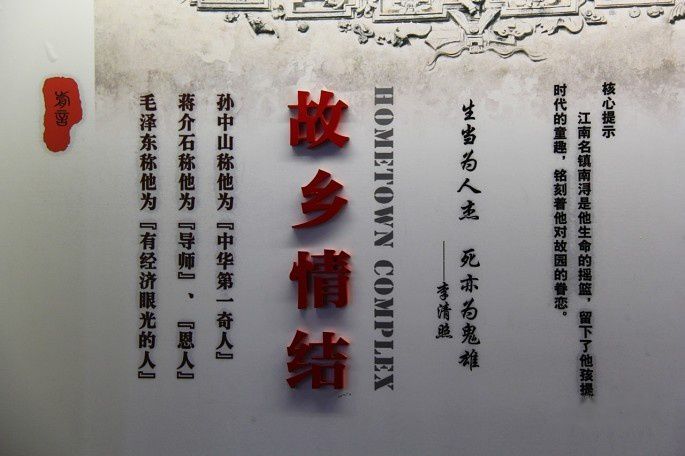 核心提示
江南名镇南浔是他生命的摇篮，留下了他孩提
时代的童趣，铭刻着他对故园的眷恋。
生当为人杰 死亦为鬼雄
——李清照
HOMETOWN COMPLEX
故乡情结
孙中山称他为『中华第一奇人』
蒋介石称他为『导师』、『恩人』
毛泽东称他为『有经济眼光的人』